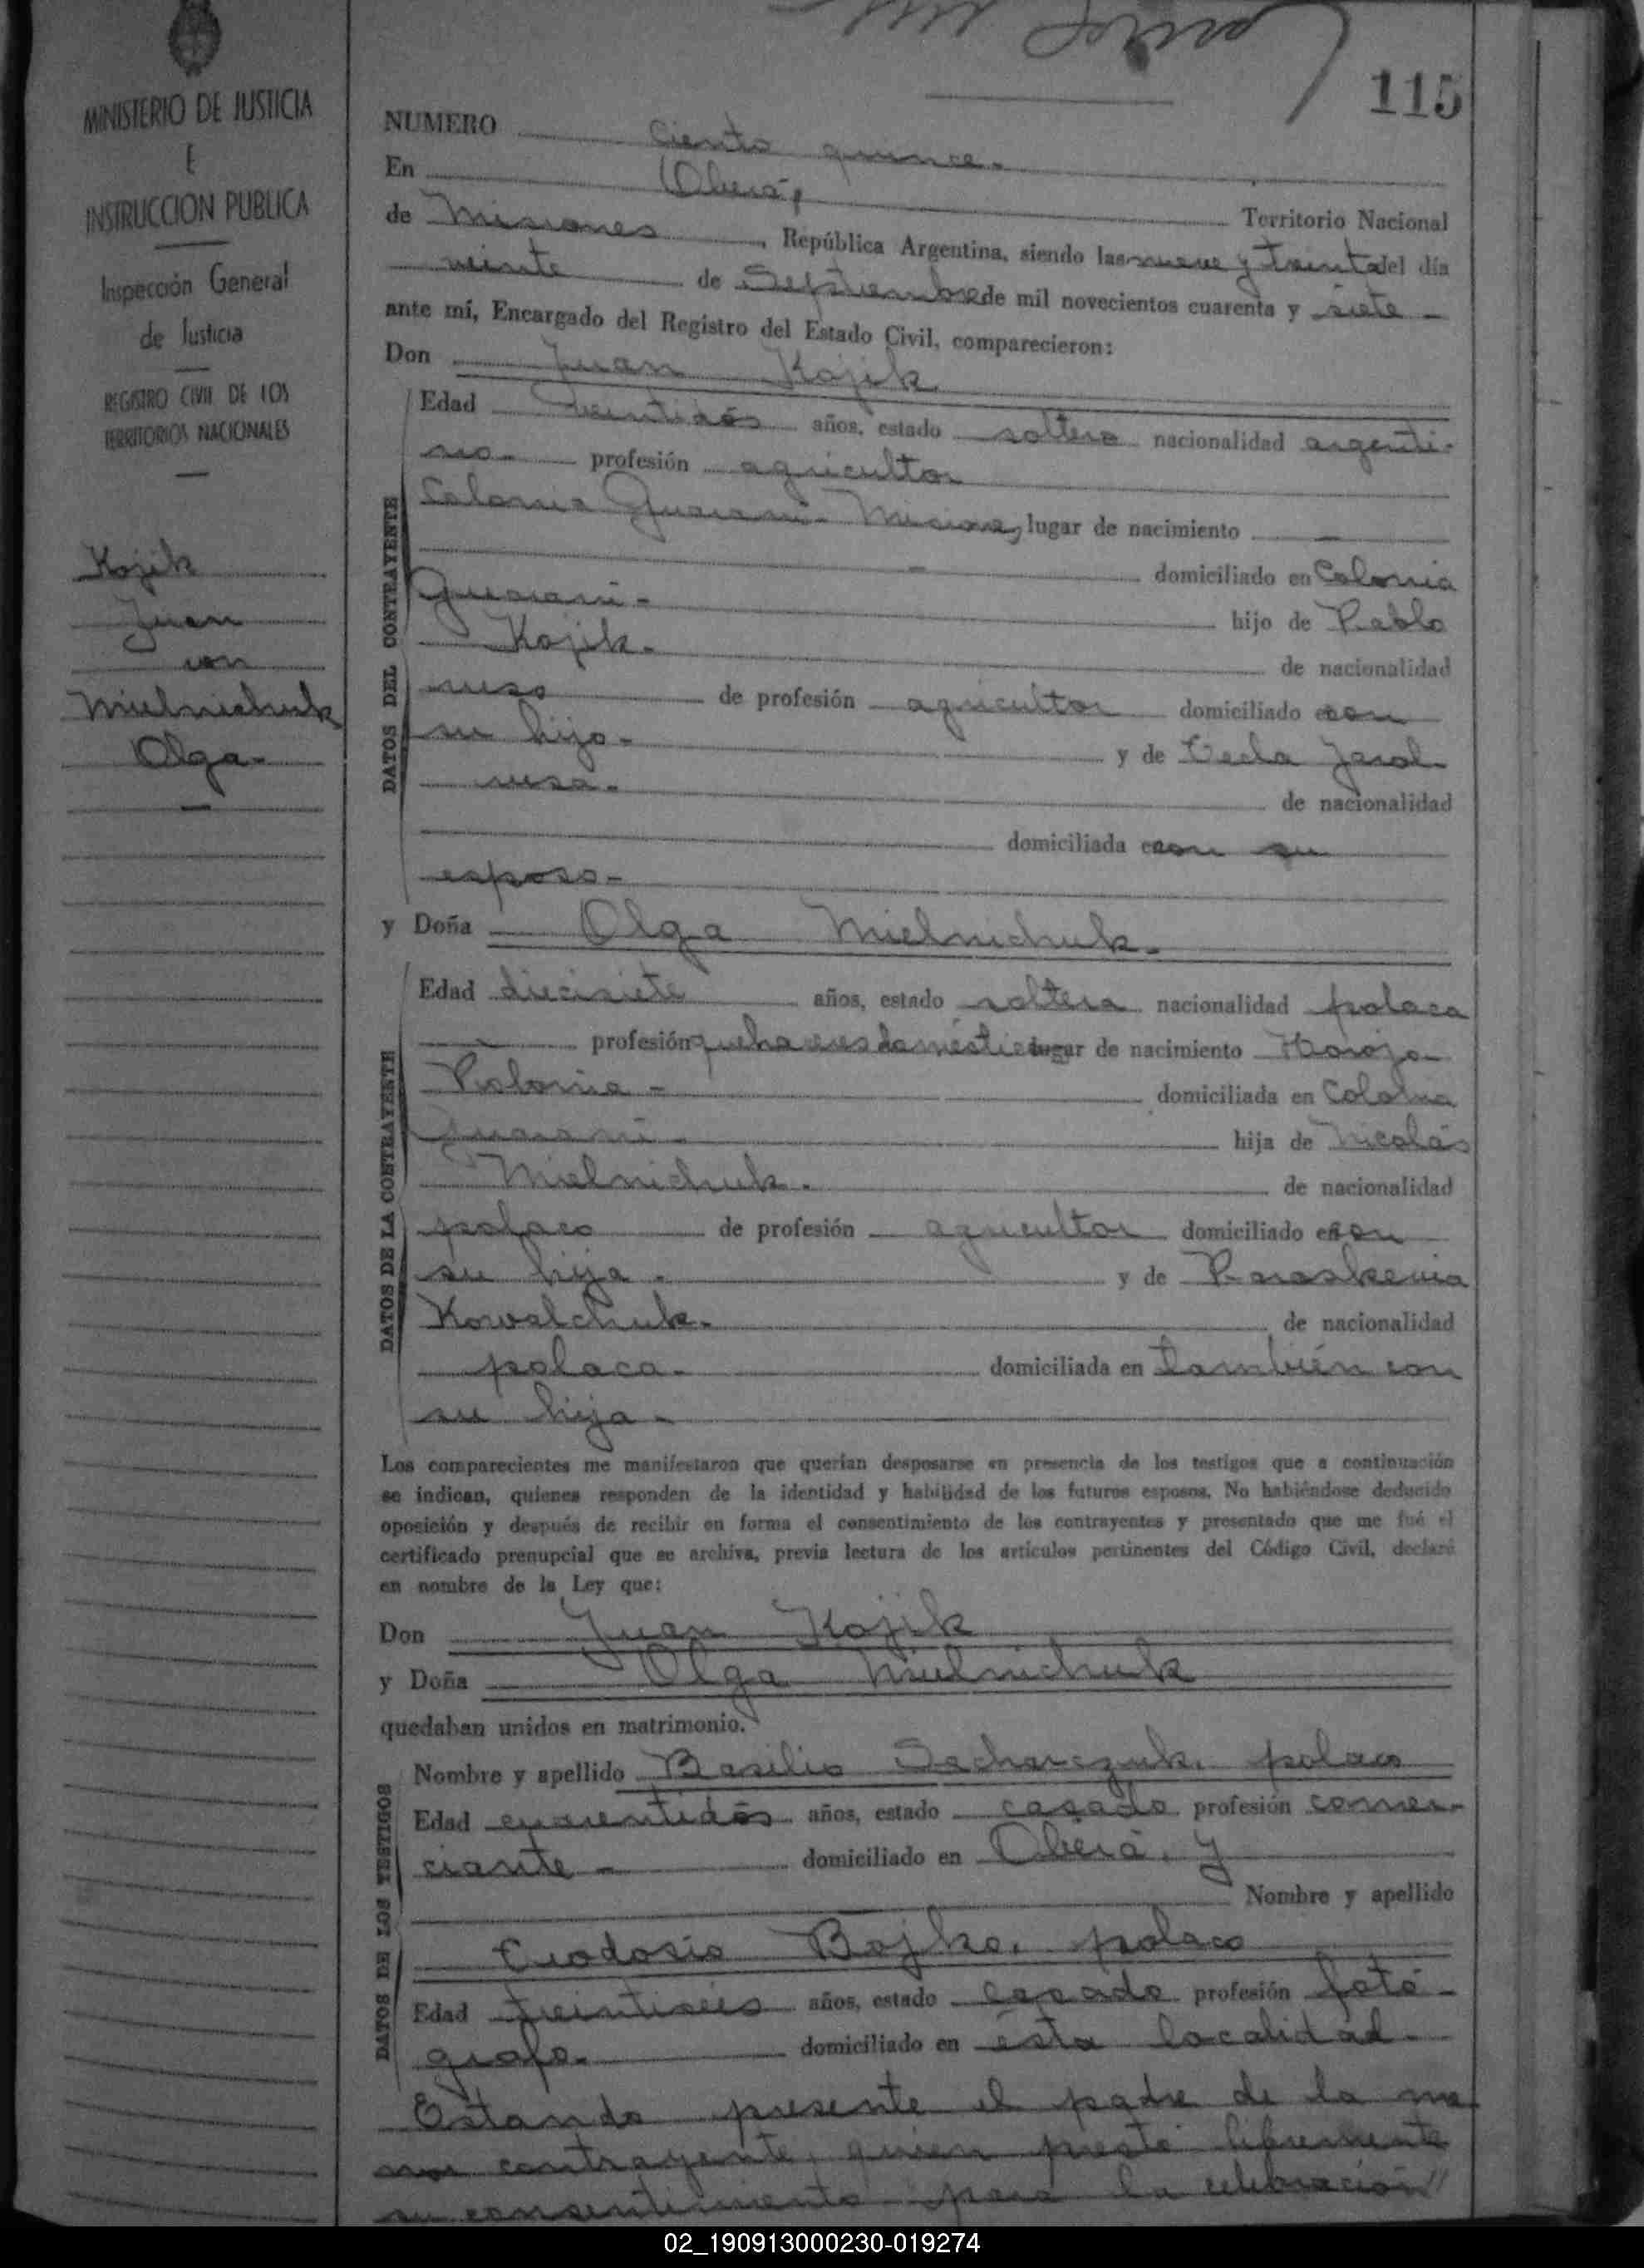 115
MINISTERIO DE JUSTICIA
E
INSTRUCCION PUBLICA
Inspección General
de Justicia
REGISTRO CIVIL DE LOS
TERRITORIOS NACIONALES
Kojik
Juan
con
Mielnichuk
Olga-
NUMERO Ciento quince.
En Oberá,
Territorio Nacional
de Misiones, República Argentina, siendo las nueve y treinta del día
veinte de Septiembre de mil novecientos cuarenta y siete-
ante mí, Encargado del Registro del Estado Civil, comparecieron:
Don Juan Kojik
DATOS DEL CONTRAYENTE
Edad veintidós años, estado soltero nacionalidad argenti-
no- profesión agricultor
Colonia Guarani- Misiones, lugar de nacimiento -
- domiciliado en Colonia
Guarani- hijo de Pablo
Kojik- de nacionalidad
ruso de profesión agricultor domiciliado con
su hijo- y de Tecla Jarol-
rusa- de nacionalidad
domiciliada con su
esposo-
y Doña Olga Mielnichuk-
DATOS DE LA CONTRAYENTE
Edad diecisiete años, estado soltera nacionalidad polaca
profesión quehaceres domésticos lugar de nacimiento
Polonia- domiciliada en Colonia
Guarani- hija de Nicolás
Mielnichuk. de nacionalidad
polaco de profesión agricultor domiciliado con
su hija. y de Paraskewia
Kowalchuk. de nacionalidad
polaca- domiciliada en también con
su hija-
Los comparecientes me manifestaron que querían desposarse en presencia de los testigos que a continuación
se indican, quienes responden de la identidad y habilidad de los futuros esposos. No habiéndose deducido
oposición y después de recibir en forma el consentimiento de los contrayentes y presentado que me fué el
certificado prenupcial que se archiva, previa lectura de los artículos pertinentes del Código Civil, declaré
en nombre de la Ley que:
Don Juan Kojik
y Doña Olga Mielnichuk
quedaban unidos en matrimonio.
DATOS DE LOS TESTIGOS
Nombre y apellido Basilio Sacharczuk, polaco
Edad cuarentidós años, estado casado profesión comer-
ciante- domiciliado en Oberá, y
Nombre y apellido
Teodosio Bojko, polaco
Edad treintiseis años, estado casado profesión fotó-
grafo- domiciliado en ésta localidad-
Estando presente el padre de la me
nor contrayente, quien prestó libremente
su consentimiento para la celebración"
02_190913000230-019274